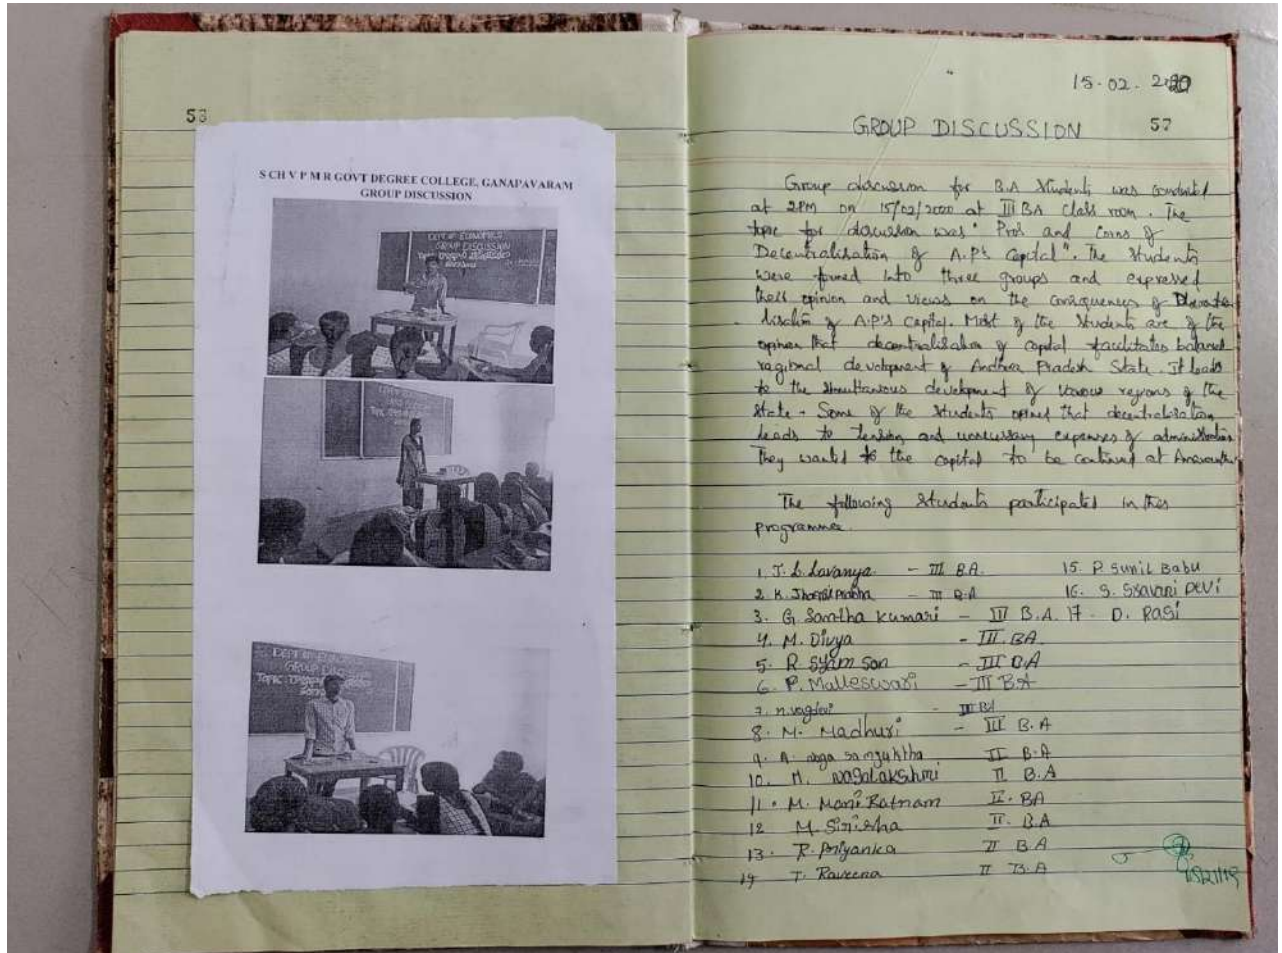 53
S CH V P M R GOVT DEGREE COLLEGE, GANAPAVARAM
GROUP DISCUSSION
DEPT OF ECONOMICS
GROUP DISCUSSION
GROUP
TOPIC
15.02.
GROUP DISCUSSION 57
Group discussion for B.A students was conducted
at 2PM on 15/02/2020 at III BA Class room. The
topic for discussion was "Pros and Cons of
Decentralisation of A.P's Capital". The students
were formed into three groups and expressed
their opinion and views on the consequences of
A.P's Capital. Most of the students are of the
opinion that decentralisation of capital facilitates balanced
regional development of Andhra Pradesh State. It leads
to the simultaneous development of various regions of the
state. Some of the students opined that decentralisation
leads to tension and unnecessary expenses of administration
They wanted to the capital to be continued at
The following students participated in this
programme.
1. J. L. Lavanya - III B.A. 15. P. Sunil Babu
2. K. - III B.A 16. S. Sravani Devi
3. G. Santha Kumari - III B.A. 17. D. Rasi
4. M. Divya - III. BA
5. R Syam Son - III BA
6. P. Malleswari - III B.A
7. - III BA
8. M. Madhuri - III B.A
9. A. naga samjuktha II B.A
10. M. Nagalakshmi II B.A
11. M. Mani Ratnam II. BA
12 M. Sirisha II. B.A
13. R. Priyanka II B.A
14 T. Raveena II B.A